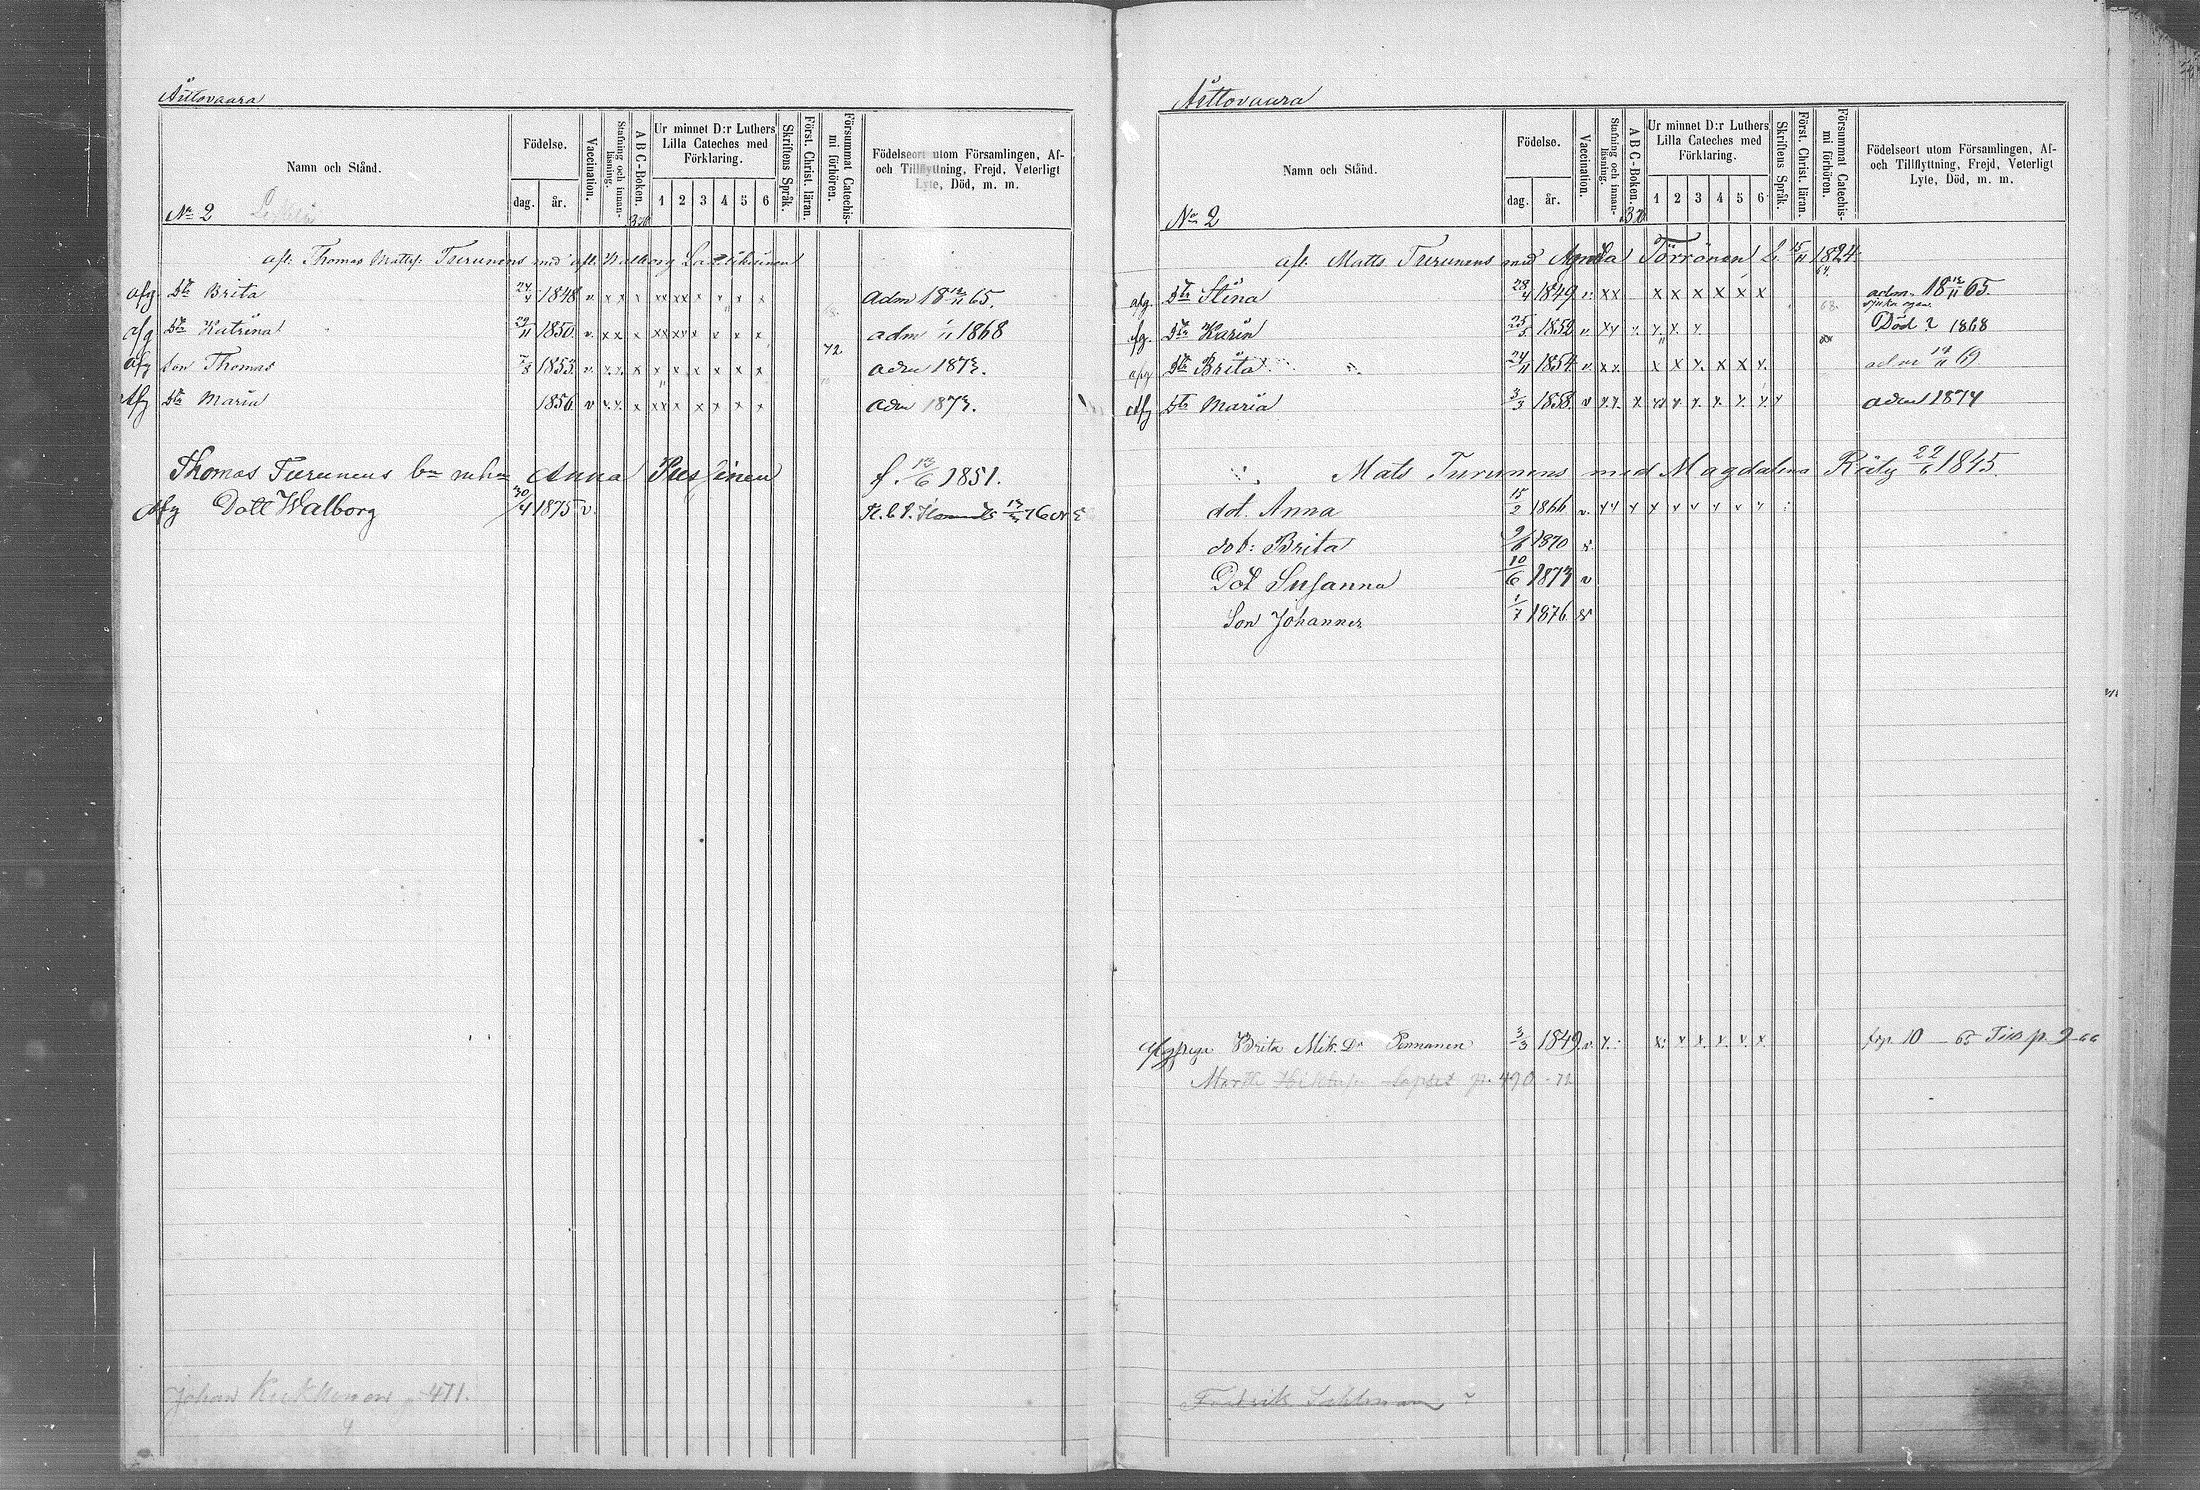 Åittovaara
Namn och Stånd.
Födelse.
dag. år.
Vaccination.
Stafning och innan-läsning.
A B C-Boken.
Ur minnet D:r Luthers Lilla Cateches med Förklaring.
1 2 3 4 5 6
Skriftens Språk.
Först. Christ. läran.
Försummat Catechis-mi förhören.
Födelseort utom Församlingen, Af- och Tillflyttning, Frejd, Veterligt Lyte, Död, m. m.
No 2
afl. Thomas Matts: Turunens med afl. Walborg
afg Dtr Brita 24/4 1848 v x x x xx xx x x x x adm 18 12/11 65.
afg Dtr Katrina 29/11 1850 v. x x x adm 1/11 1868
afg Son Thomas 7/8 1853 v. x x x x x x x x x 72 adm 1873.
Afg Dtr Maria 1856 v x x x xx x x x x x adm 1873.
Thomas Turunens Anna Pussinen f. 13/6 1851.
Afg Dott Walborg 30/4 1875 v.
Johan Kukkonen p 411.
Åittovaara
Namn och Stånd.
Födelse.
dag. år.
Vaccination.
Stafning och innan-läsning.
A B C-Boken.
Ur minnet D:r Luthers Lilla Cateches med Förklaring.
1 2 3 4 5 6
Skriftens Språk.
Först. Christ. läran.
Försummat Catechis-mi förhören.
Födelseort utom Församlingen, Af- och Tillflyttning, Frejd, Veterligt Lyte, Död, m. m.
No 2
afl. Matts Turunens med Agneta Törrönen 15/11 1824
afg. Dtr Stina 28/4 1849 v. x x x x x x x x adm. 18 12/11 65.
afg. Dtr Karin 25/5 1852 v x x x x x x Död 1868
afg Dtr Brita 24/11 1854 v. x x x x x x x x adm 14/11 69
Afg Dtr Maria 3/3 1858 v x x x adm 1874
Mats Turunens med Magdalena Räty 22/6 1845
dot. Anna 15/2 1866 v. x x x x x x x x x
dot: Brita 9/6 1870 v
Dot Susanna 10/6 1873 v
Son Johannes 1/7 1876 v
afg piga Brita Mik. Dr Pennanen 3/3 1849 v. x x x x x x x 10
p. 490
Fredrik